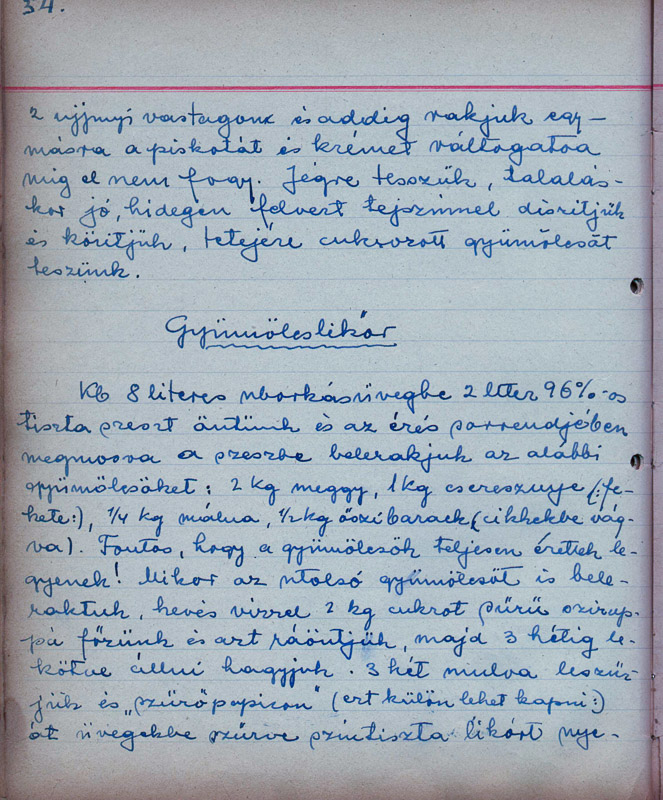 34.
2 ujjnyi vastagon és addig rakjuk egy-
másra a piskótát és krémet váltogatva
míg el nem fogy. Jégre tesszük, tálalás-
kor jó, hidegen felvert tejszínnel díszítjük
és körítjük, tetejére cukrozott gyümölcsöt
teszünk.
Gyümölcslikőr
Kb 8 literes uborkásüvegbe 2 liter 96%-os
tiszta szeszt öntünk és az érés sorrendjében
megmosva a szeszbe belerakjuk az alábbi
gyümölcsöket: 2 kg meggy, 1 kg cseresznye (:fe-
kete:), 1/4 kg málna, 1/2 kg őszibarack (cikkekbe vág-
va). Fontos, hogy a gyümölcsök teljesen érettek le-
gyenek! Mikor az utolsó gyümölcsöt is bele-
raktuk, kevés vízzel 2 kg cukrot sűrű szirup-
pá főzünk és azt ráöntjük, majd 3 hétig le-
kötve állni hagyjuk. 3 hét mulva leszűr-
jük és „szűrőpapiron" (ezt külön lehet kapni:)
át üvegekbe szűrve színtiszta likőrt nye-